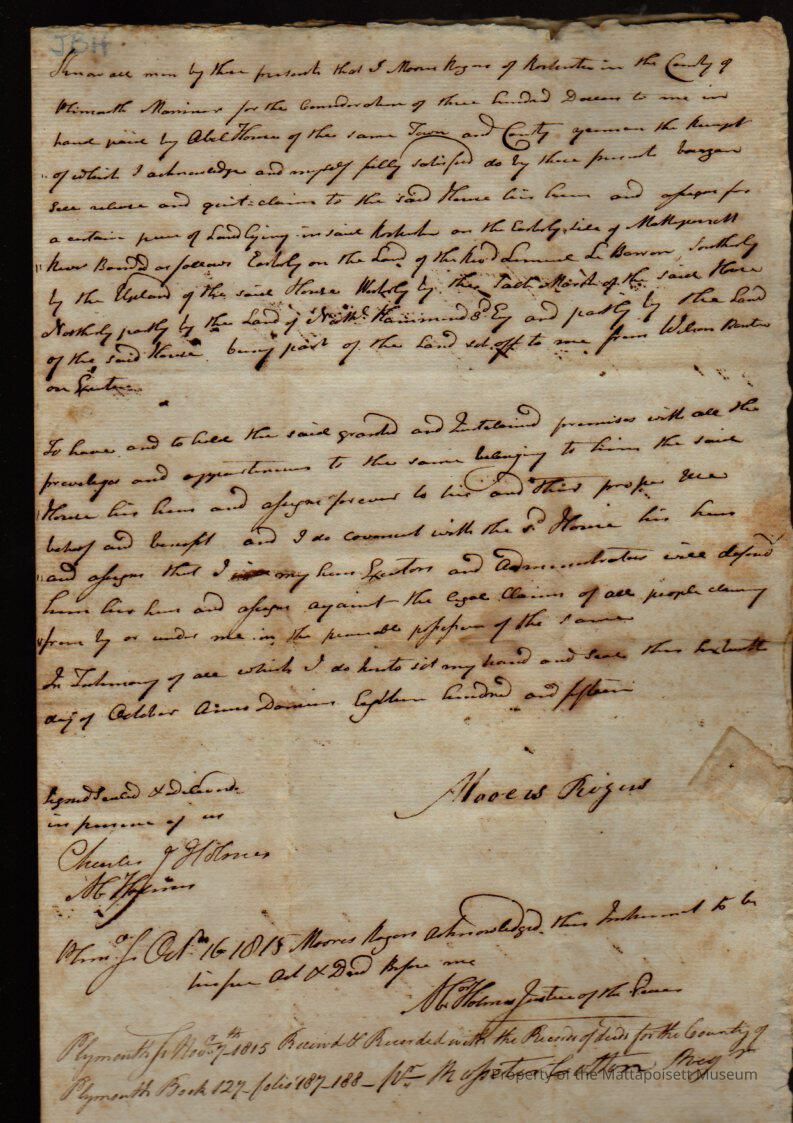 JBH
Know all men by these presents that I Moores Rogers of Rochester in the County of
Plimouth Marriner for the Consideration of three hundred Dollers to me in
hand paid by Abel House of the same Town and County yeoman the Receipt
of which I acknowledge and myself fully satisfied do by these presents bargan
sell release and quit-claim to the said House his heirs and assigns for
a certain piece of Land lying in said Rochester on the Easterly side of Mattapoisett
River Bound'd as follows Easterly on the Land of the Rev'd Lemuel Le Baron Southerly
by the Upland of the said House Westerly by the Salt Marsh of the said House
Northerly partly by the Land of Nath'l Hammond Esq and partly by the Land
of the said House being part of the Land set off to me from Wilson Barstow
on Execution
To have and to hold the said granted and premises with all the
preveleges and appurtenances to the same belonging to him the said
House his heirs and assigns forever to his and their proper use
behoof and benefit and I do covenant with the sd House his heirs
and assigns that I my heirs Executors and Administrators will defend
him his heirs and assigns against the legal Claims of all people claiming
from by or under me in the peaceable possession of the same
In Testimony of all which I do hereto set my hand and seal this sixteenth
day of October Anno Domini Eighteen hundred and fifteen
Signed Sealed & Delivered
in presence of us
Moores Rogers
Charles J Holmes
Ab Holmes
Plim'o ss Oct 16 1815 Moores Rogers acknowledged this Instrument to be
his free Act & Deed before me
Ab'm Holmes Justice of the Peace
Plymouth ss Nov 7th 1815 Received & Recorded with the Records of deeds for the County of
Plymouth Book 127 folio 187-188 pr Rossiter Cotton Regr
Property of the Mattapoisett Museum